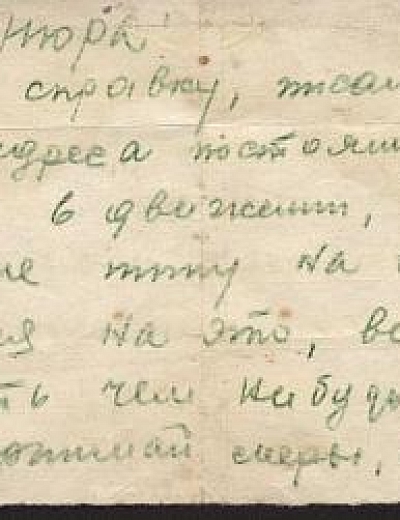 Нюра!
справку, писал
адреса постоян
в движении,
ие пишу на
я на это, вс
ть чем нибудь
онимай меры,